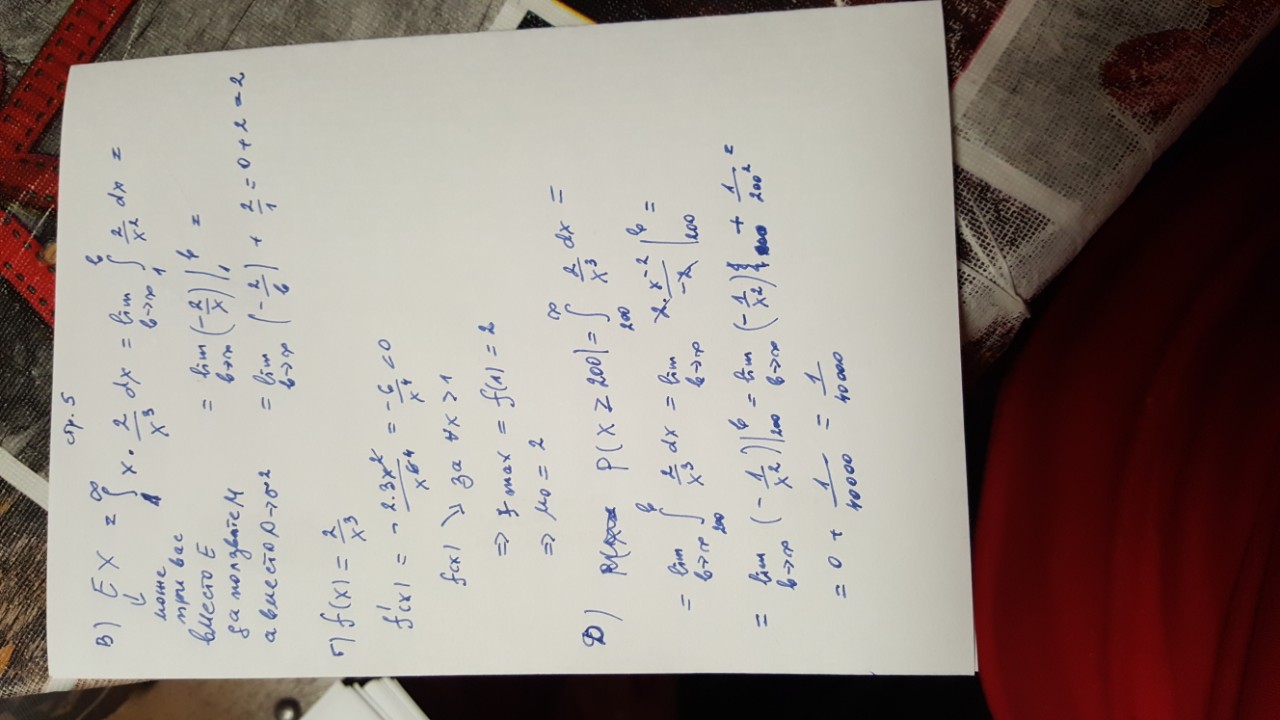 стр. 5
в) EX = ∫₁^∞ x · 2/x³ dx = lim b→∞ ∫₁^b 2/x² dx =
↓
може
при вас
вместо E
да ползвате M
а вместо D → σ²
= lim b→∞ (-2/x) |₁^b =
= lim b→∞ (-2/b) + 2/1 = 0 + 2 = 2
г) f(x) = 2/x³
f'(x) = -2.3x²/x⁶⁴ = -6/x⁴ < 0
f(x) ↘ за ∀x > 1
⇒ f max = f(1) = 2
⇒ M₀ = 2
Д) P(X ≥ 200) = ∫₂₀₀^∞ 2/x³ dx =
= lim b→∞ ∫₂₀₀^b 2/x³ dx = lim b→∞ 2.x⁻²/-2 |₂₀₀^b =
= lim b→∞ (-1/x²) |₂₀₀^b = lim b→∞ (-1/x²) + 1/200² =
= 0 + 1/40000 = 1/40000